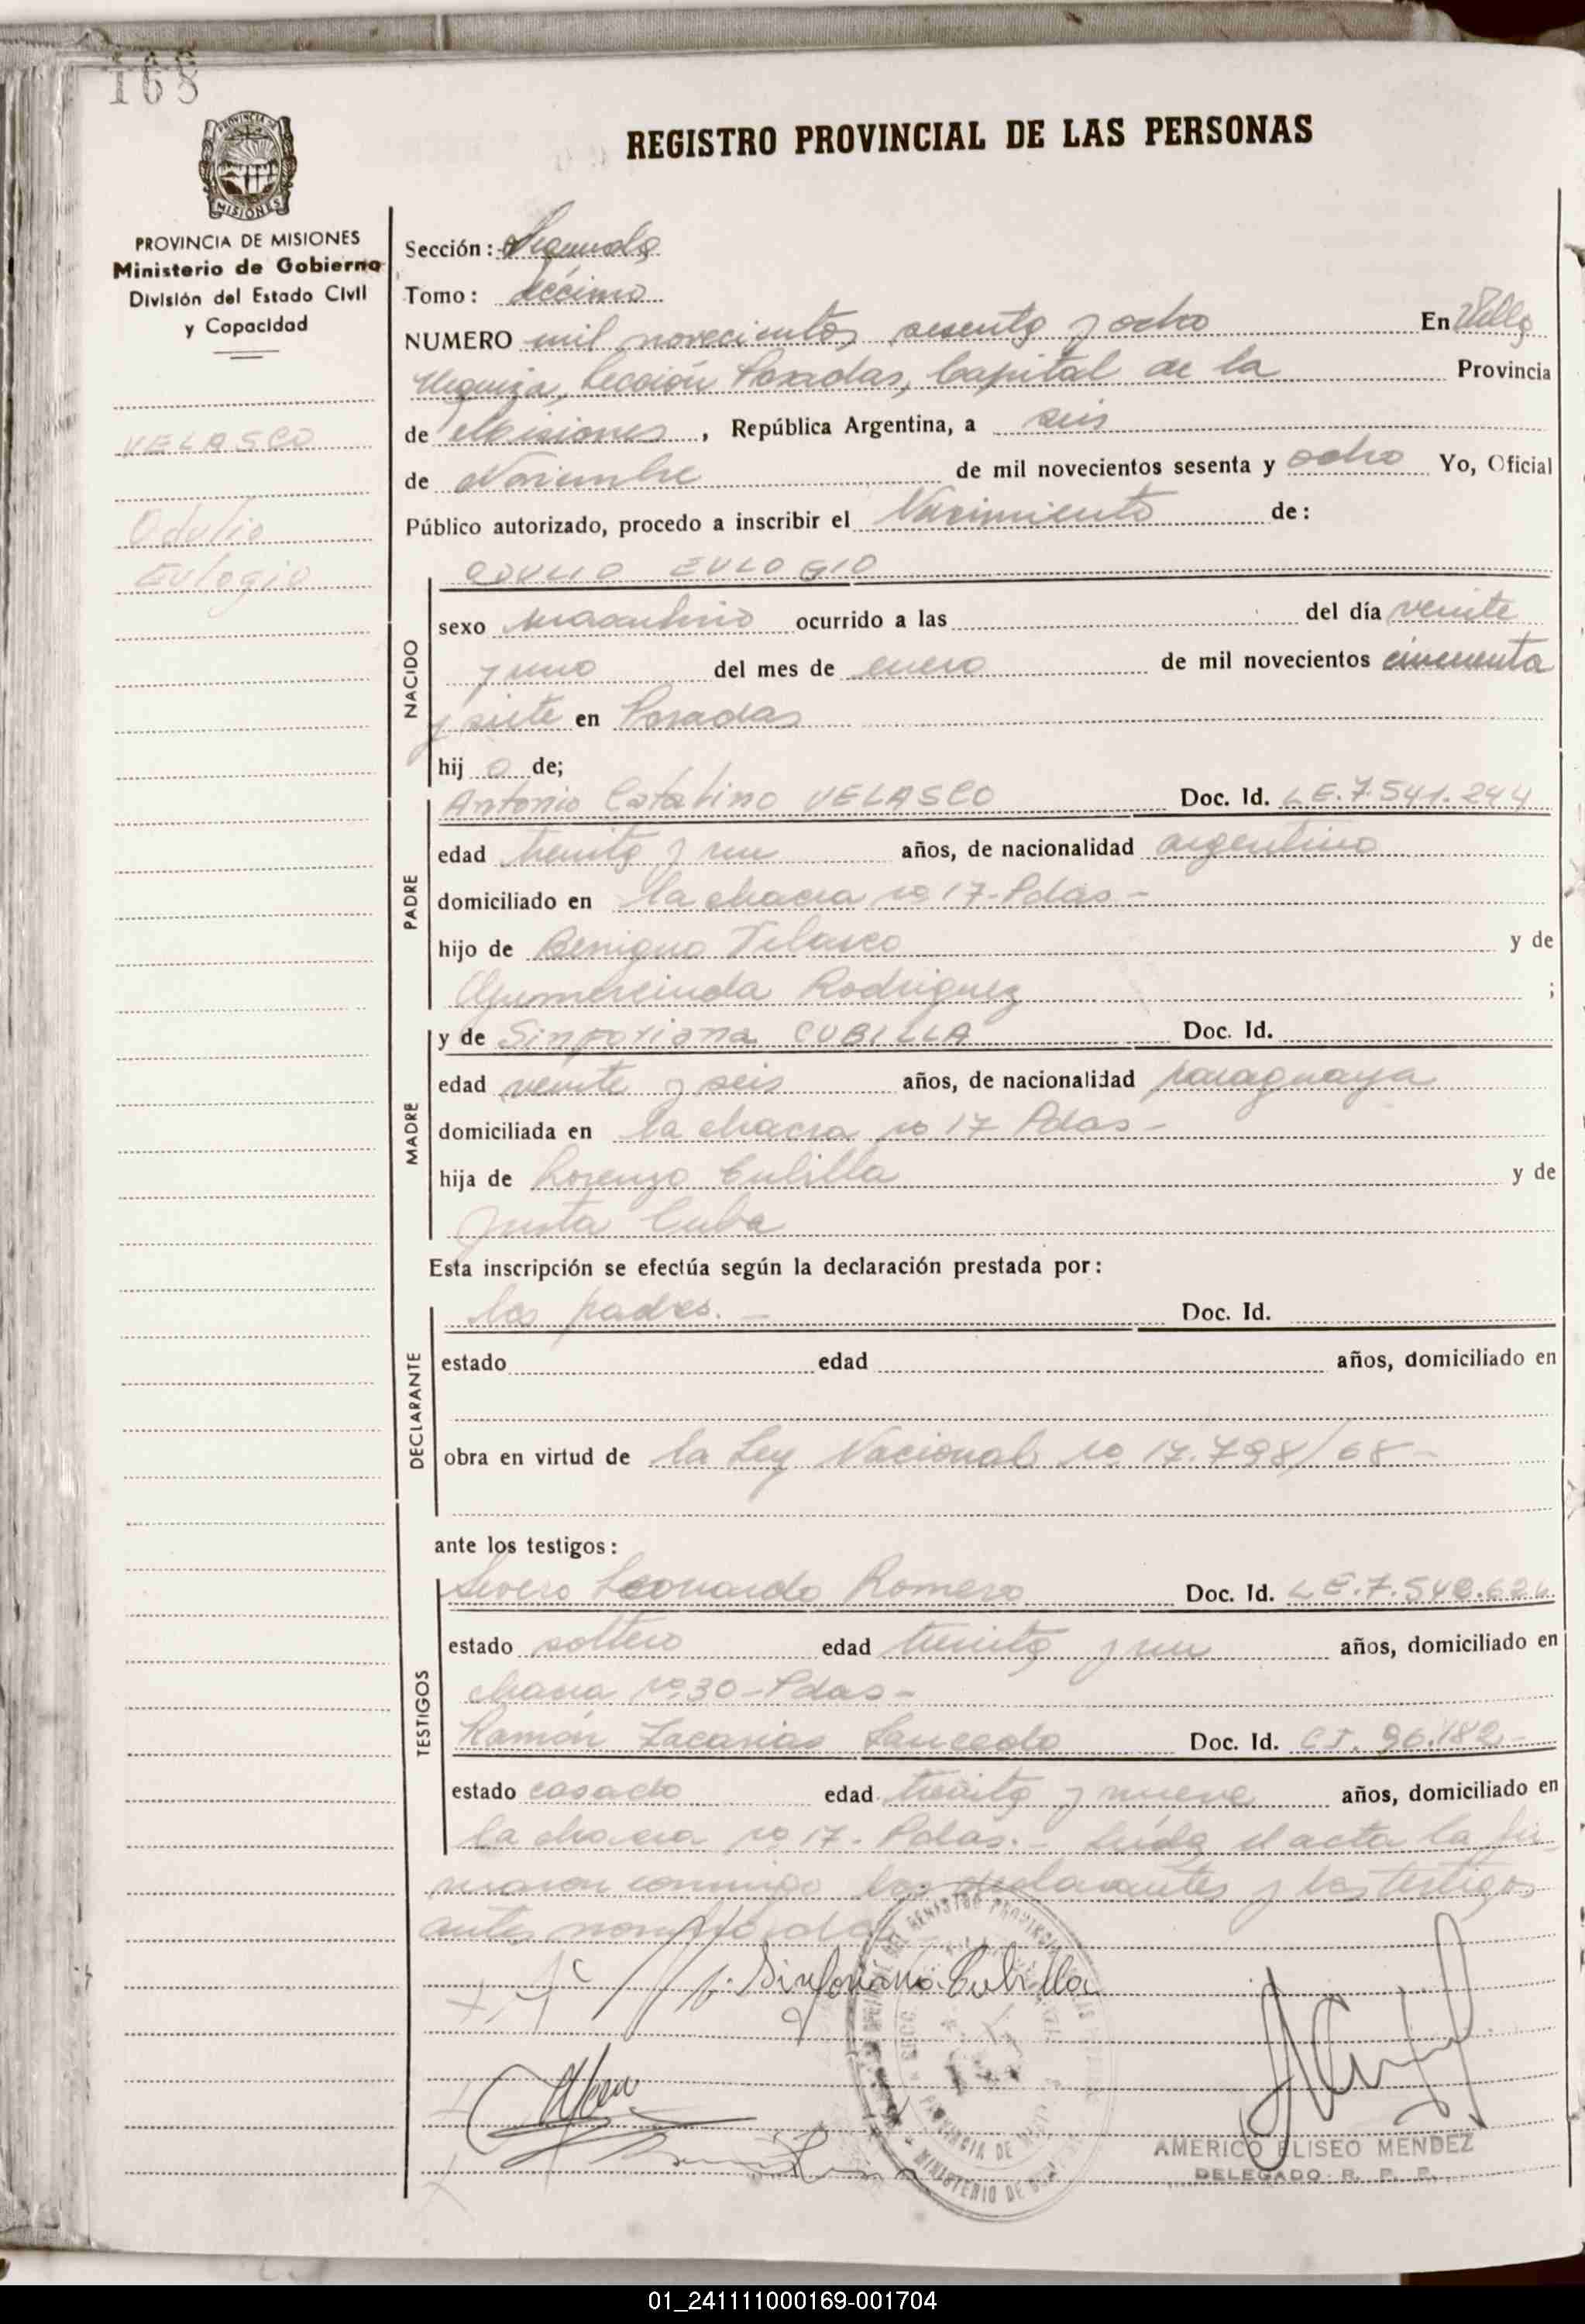 168
REGISTRO PROVINCIAL DE LAS PERSONAS
PROVINCIA DE
MISIONES
PROVINCIA DE MISIONES
Ministerio de Gobierno
División del Estado Civil
y Capacidad
VELASCO
Odulio
Eulogio
Sección: Segunda
Tomo: décimo
NUMERO mil novecientos sesenta y ocho En Villa
Urquiza, Sección Posadas, Capital de la Provincia
de Misiones, República Argentina, a seis
de Noviembre de mil novecientos sesenta y ocho Yo, Oficial
Público autorizado, procedo a inscribir el Nacimiento de:
NACIDO
ODULIO EULOGIO
sexo masculino ocurrido a las del día veinte
y uno del mes de enero de mil novecientos cincuenta
y siete en Posadas
hij o de;
PADRE
Antonio Catalino VELASCO Doc. Id. L E. 7.541.244
edad treinta y un años, de nacionalidad argentino
domiciliado en la chacra no 17-Pdas-
hijo de Benigno Velasco y de
Gumercinda Rodriguez ;
MADRE
y de Sinforiana CUBILLA Doc. Id.
edad veinte y seis años, de nacionalidad paraguaya
domiciliada en la chacra no 17 Pdas-
hija de Lorenzo Cubilla y de
Justa Cuba
Esta inscripción se efectúa según la declaración prestada por:
DECLARANTE
los padres.- Doc. Id.
estado edad años, domiciliado en
obra en virtud de la Ley Nacional no 17.798/68-
ante los testigos:
TESTIGOS
Severo Leonardo Romero Doc. Id. L E. 7.540.624
estado soltero edad treinta y un años, domiciliado en
chacra no 30-Pdas-
Ramón Zacarias Sauceda Doc. Id. CI. 96.182-
estado casado edad treinta y nueve años, domiciliado en
la chacra no 17. Pdas.- Leída el acta la fir
maron conmigo los declarantes y los testigos
antes nombrados
Sinforiana Cubilla
PROVINCIA DE
MINISTERIO DE
AMERICO ELISEO MENDEZ
DELEGADO R. P. P.
01_241111000169-001704